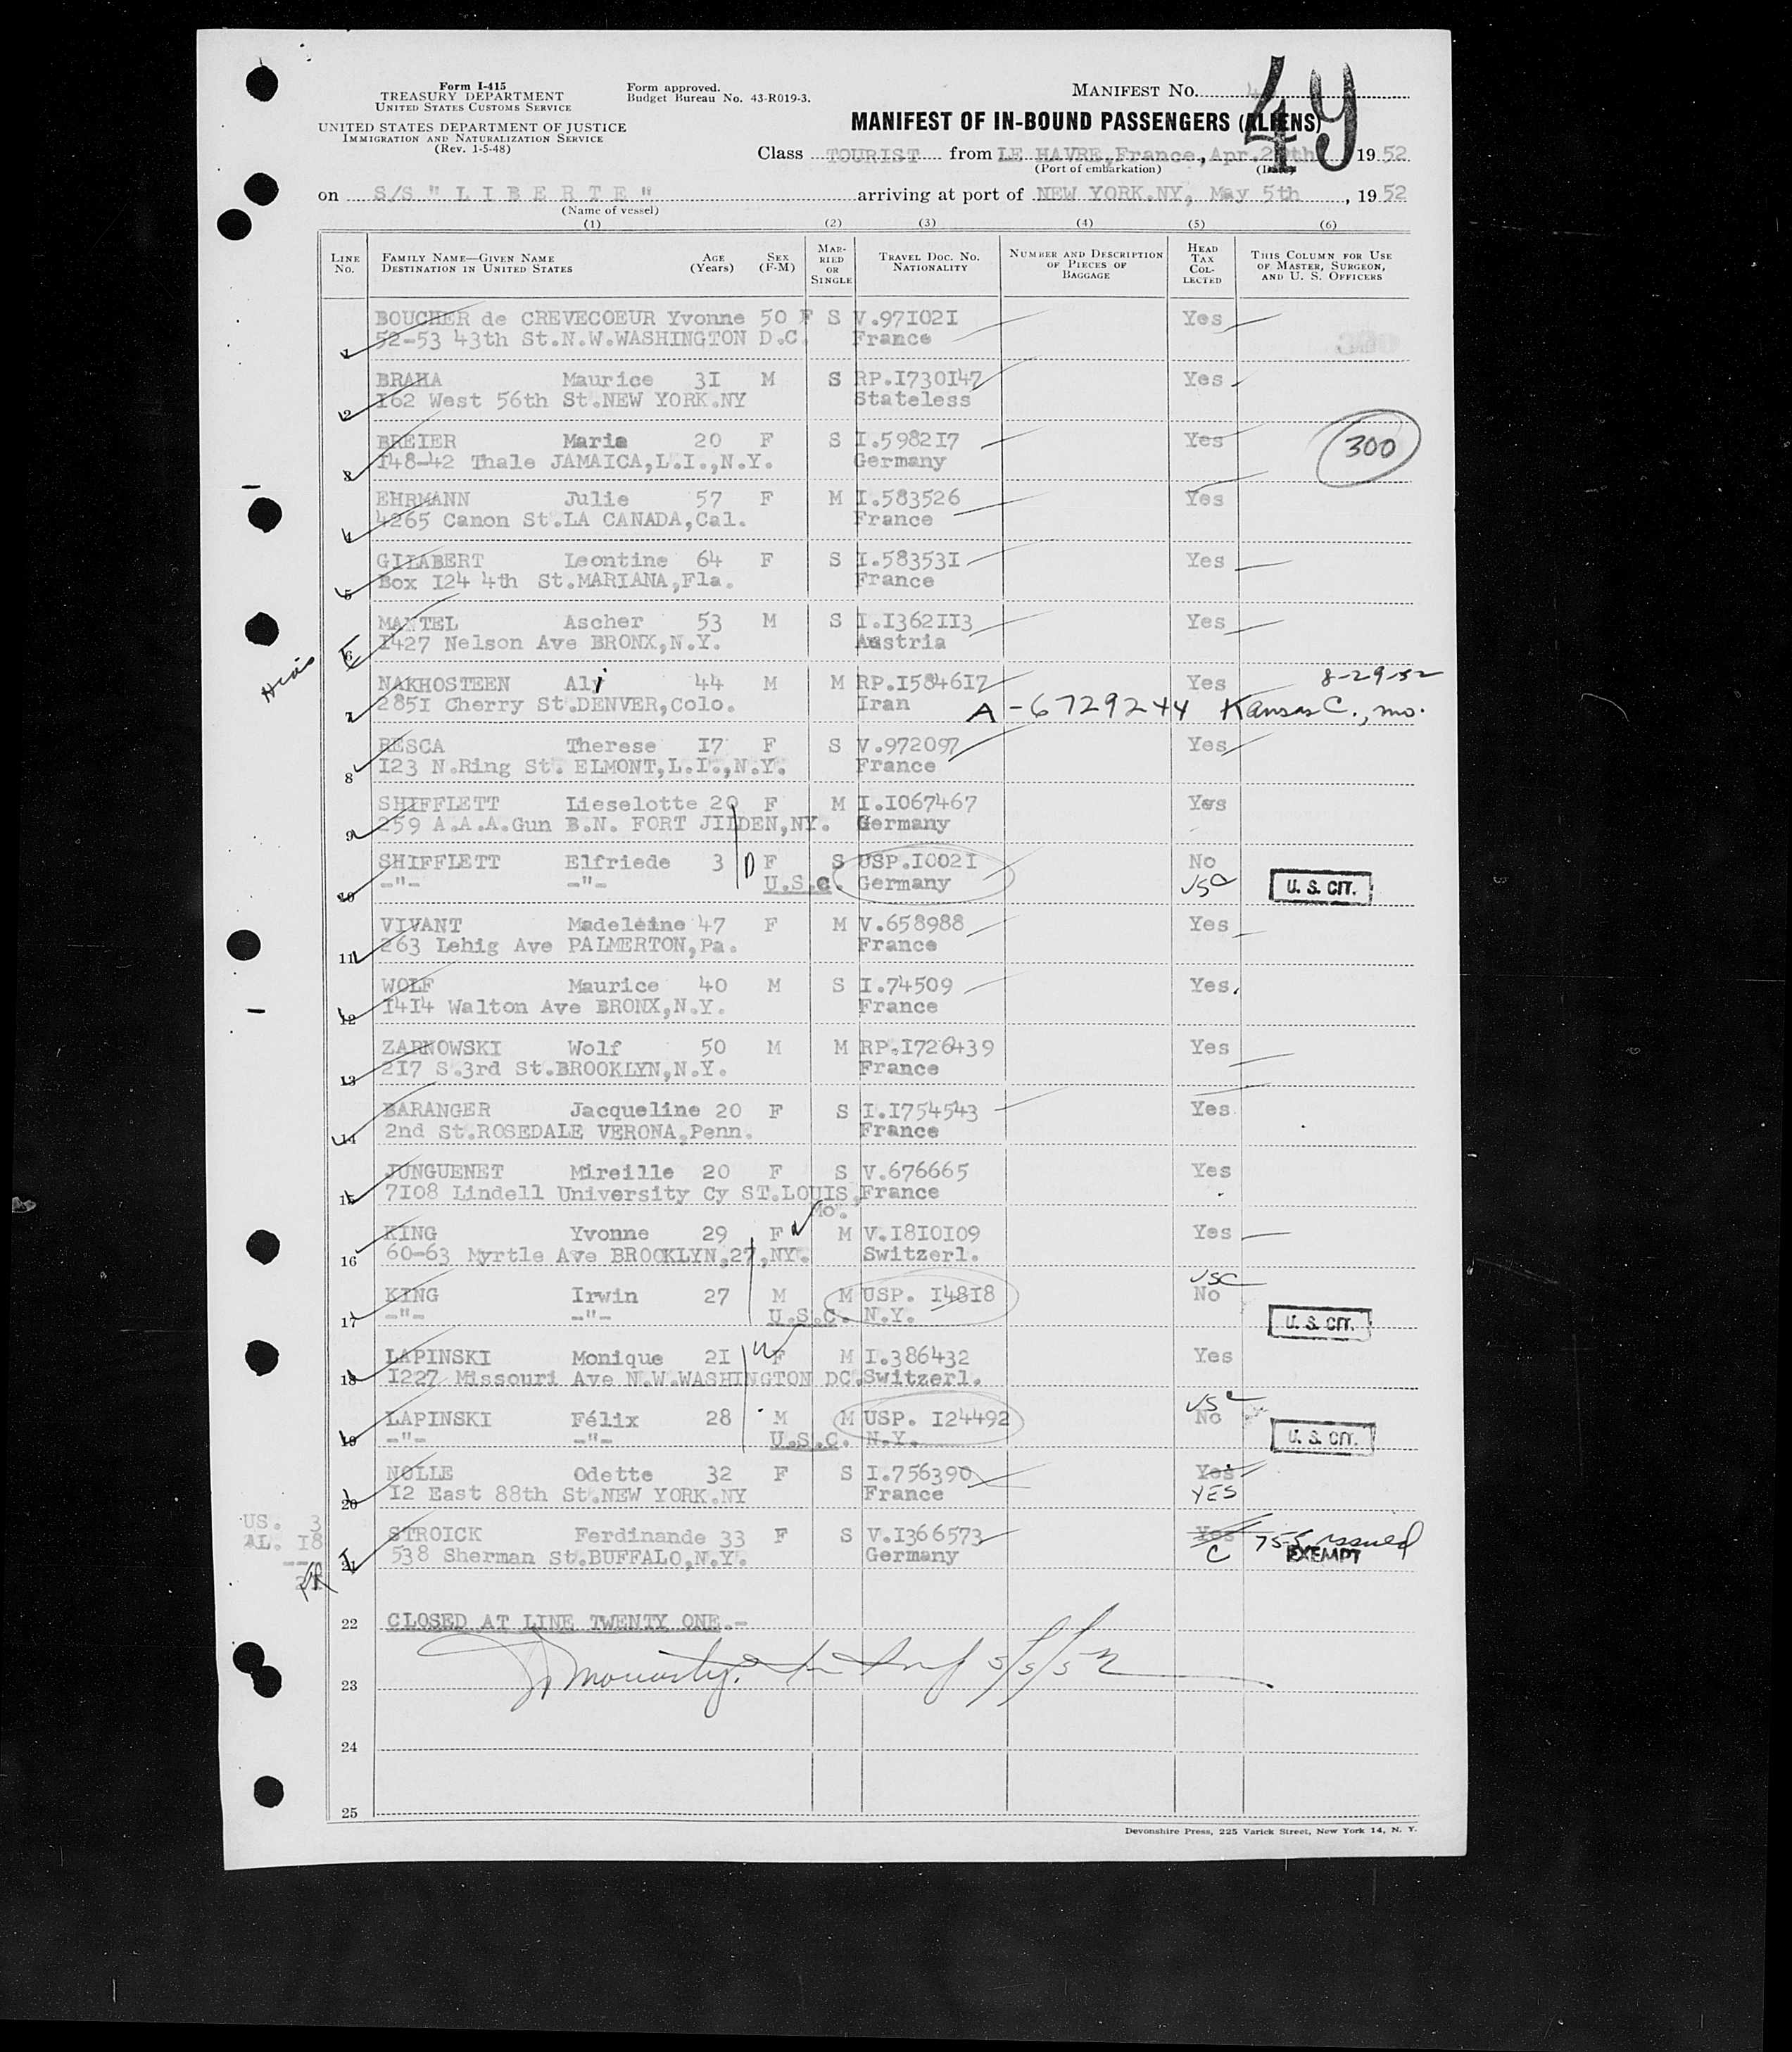 Form I-415
TREASURY DEPARTMENT
UNITED STATES CUSTOMS SERVICE
UNITED STATES DEPARTMENT OF JUSTICE
IMMIGRATION AND NATURALIZATION SERVICE
(Rev. 1-5-48)
Form approved.
Budget Bureau No. 43-R019-3.
MANIFEST No.
49
MANIFEST OF IN-BOUND PASSENGERS (ALIENS)
Class TOURIST from LE HAVRE,France., Apr. 1952
(Port of embarkation) (Date)
on S/S " L I B E R T E " arriving at port of NEW YORK.NY, May 5th, 1952
(Name of vessel)
(1) (2) (3) (4) (5) (6)
LINE No. FAMILY NAME—GIVEN NAME DESTINATION IN UNITED STATES AGE (Years) SEX (F-M) MARRIED OR SINGLE TRAVEL DOC. No. NATIONALITY NUMBER AND DESCRIPTION OF PIECES OF BAGGAGE HEAD TAX COLLECTED THIS COLUMN FOR USE OF MASTER, SURGEON, AND U. S. OFFICERS
BOUCHER de CREVECOEUR Yvonne 50 F S V.97I02I Yes
1 52-53 43th St.N.W.WASHINGTON D.C. France
BRAHA Maurice 3I M S RP.I730I47 Yes
2 I62 West 56th St.NEW YORK.NY Stateless
BREIER Maria 20 F S I.5982I7 Yes 300
3 I48-42 Thale JAMAICA,L.I.,N.Y. Germany
EHRMANN Julie 57 F M I.583526 Yes
4 4265 Canon St.LA CANADA,Cal. France
GILABERT Leontine 64 F S I.58353I Yes
5 Box I24 4th St.MARIANA,Fla. France
MANTEL Ascher 53 M S I.I362II3 Yes
6 I427 Nelson Ave BRONX,N.Y. Austria
Hias
NAKHOSTEEN Ali 44 M M RP.I5846I7 Yes 8-29-52
7 285I Cherry St.DENVER,Colo. Iran A-6729244 Kansas C., Mo.
RESCA Therese I7 F S V.972097 Yes
8 I23 N.Ring St. ELMONT,L.I.,N.Y. France
SHIFFLETT Lieselotte 20 F M I.I067467 Yes
9 259 A.A.A.Gun B.N. FORT JILDEN,NY. Germany
SHIFFLETT Elfriede 3 F S USP.I002I No
10 -"- -"- U.S.C. Germany USC U. S. CIT.
VIVANT Madeleine 47 F M V.658988 Yes
11 263 Lehig Ave PALMERTON,Pa. France
WOLF Maurice 40 M S I.74509 Yes.
12 I4I4 Walton Ave BRONX,N.Y. France
ZARNOWSKI Wolf 50 M M RP.I726439 Yes
13 2I7 S.3rd St.BROOKLYN,N.Y. France
BARANGER Jacqueline 20 F S I.I754543 Yes
14 2nd St.ROSEDALE VERONA,Penn. France
JUNGUENET Mireille 20 F S V.676665 Yes
15 7I08 Lindell University Cy ST.LOUIS, France
Mo.
KING Yvonne 29 F M V.I8I0I09 Yes
16 60-63 Myrtle Ave BROCKLYN,27,NY. Switzerl.
USC
KING Irwin 27 M M USP. I48I8 No
17 -"- -"- U.S.C. N.Y. U. S. CIT.
LAPINSKI Monique 2I F M I.386432 Yes
18 I227 Missouri Ave N.W.WASHINGTON DC. Switzerl.
USC
LAPINSKI Félix 28 M M USP. I24492 No
19 -"- -"- U.S.C. N.Y. U. S. CIT.
NOLLE Odette 32 F S I.756390 Yes
20 I2 East 88th St.NEW YORK.NY France YES
US. 3
STROICK Ferdinande 33 F S V.I366573 Yes 75-5 issued
AL. I8
21 538 Sherman St.BUFFALO,N.Y. Germany C EXEMPT
22 CLOSED AT LINE TWENTY ONE.-
5/5/52
23
24
25
Devonshire Press, 225 Varick Street, New York 14, N. Y.